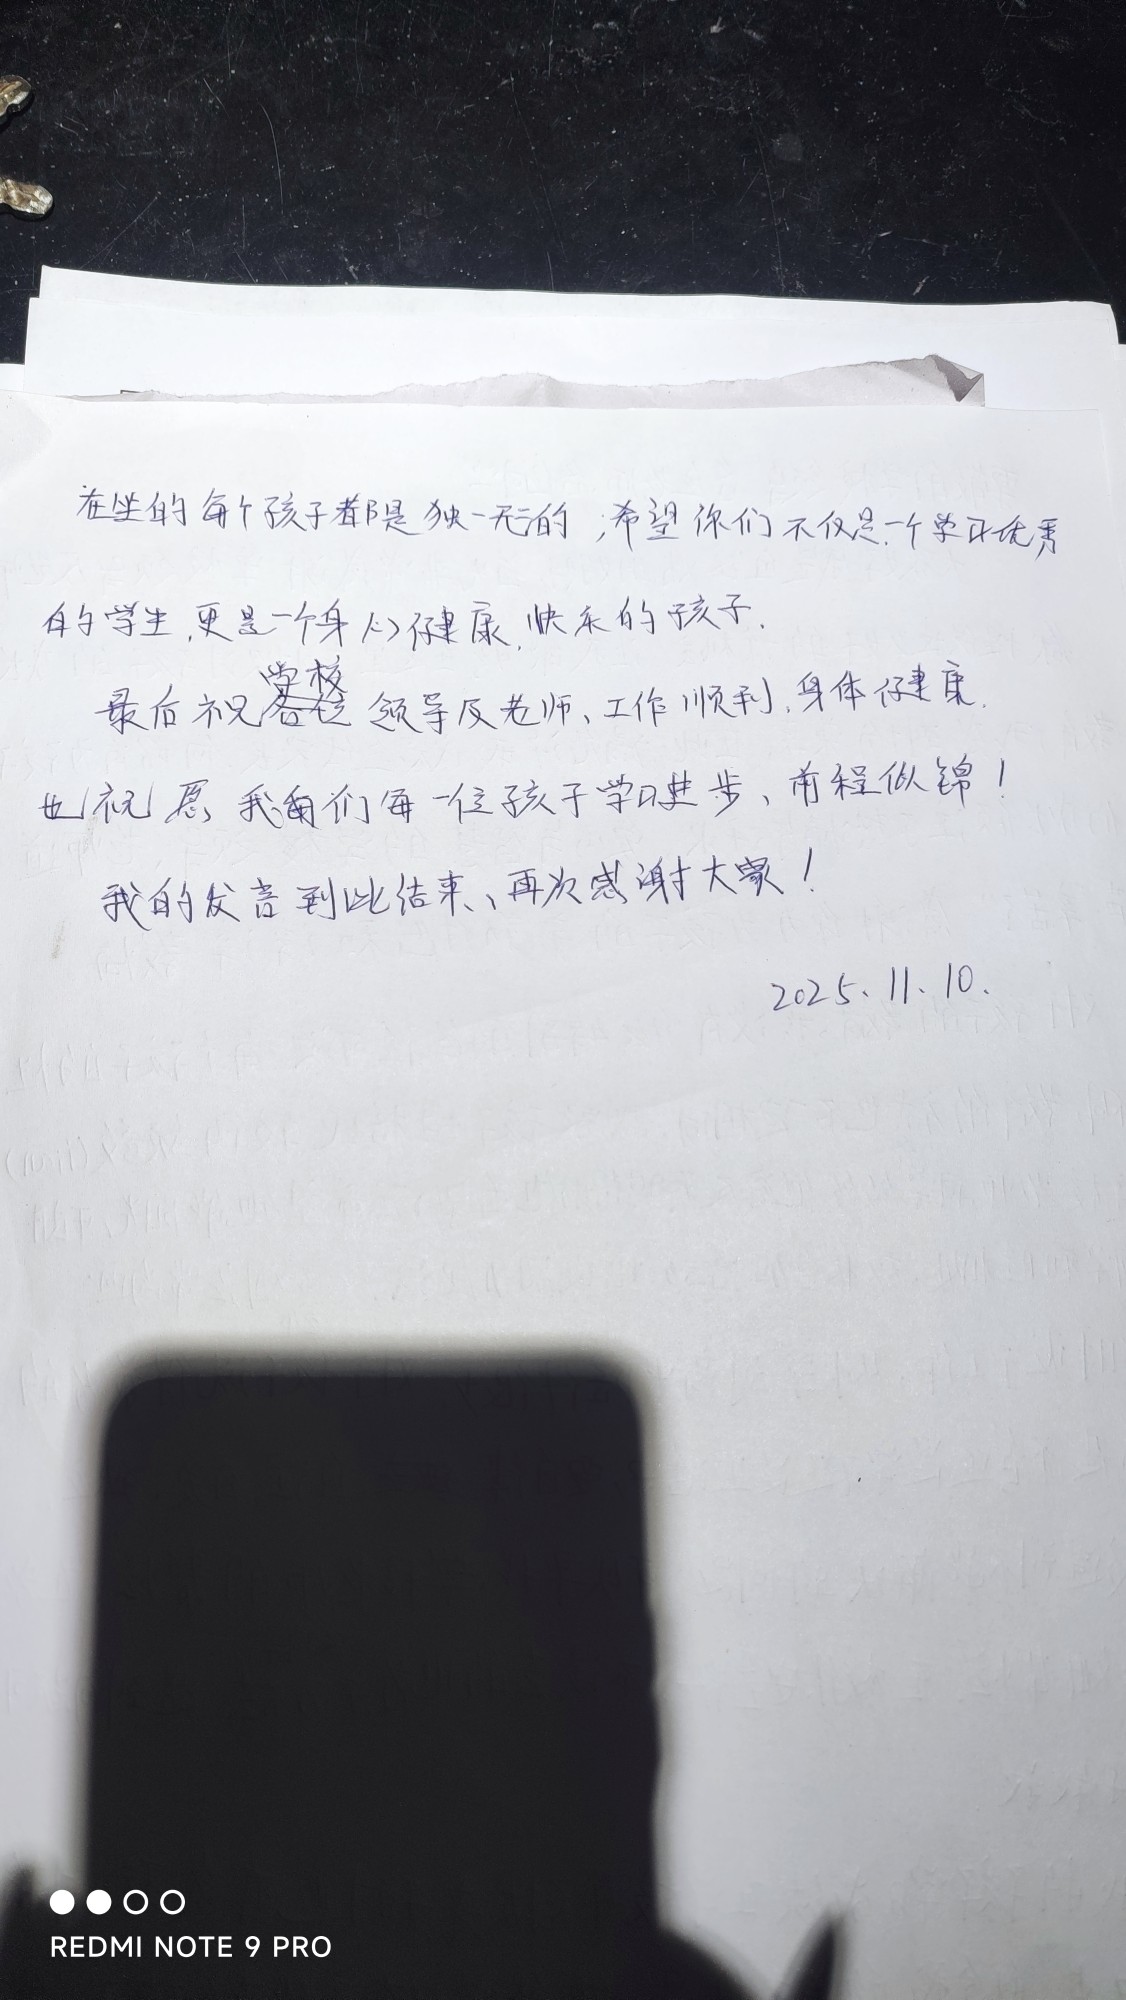 在坐的每个孩子都是独一无二的，希望你们不仅是一个学习优秀
的学生，更是一个身心健康，快乐的孩子.
学校
最后祝各位领导及老师、工作顺利，身体健康.
也祝愿我们每一位孩子学习进步、前程似锦！
我的发言到此结束、再次感谢大家！
2025.11.10.
REDMI NOTE 9 PRO